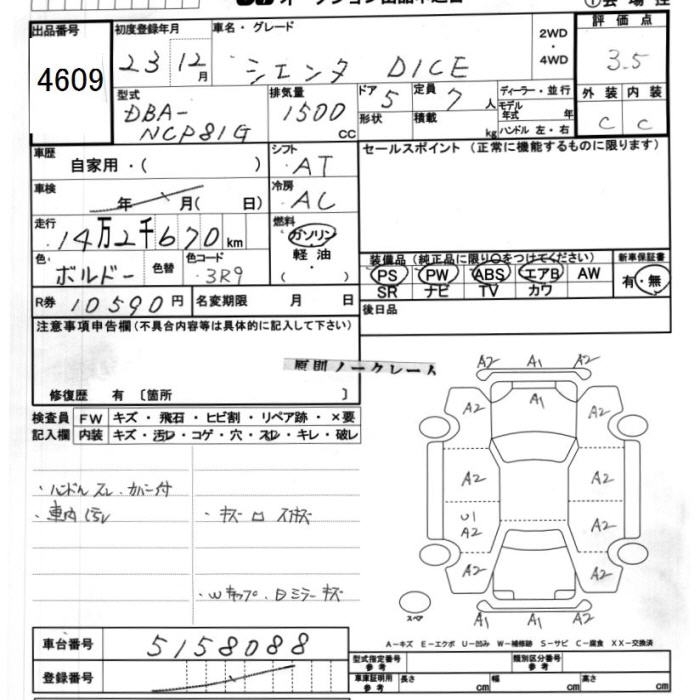 出品番号 初度登録年月 車名・グレード 2WD・4WD 評価点
4609 23年 12月 シエンタ DICE 3.5
型式 排気量 ドア 定員 ディーラー・並行 外装 内装
DBA-NCP81G 1500cc 5 7人 モデル年式 年 C C
形状 積載 kg ハンドル 左・右
車歴 自家用・( ) シフト AT セールスポイント (正常に機能するものに限ります)
車検 年 月( 日) 冷房 AC
走行 14万2千670km 燃料 ガソリン 軽油・( )
色 ボルドー 色替 色コード 3R9
装備品 (純正品に限り○をつけてください) 新車保証書
PS PW ABS エアB AW 有・無
SR ナビ TV カワ
R券 10590円 名変期限 月 日 後日品
注意事項申告欄(不具合内容等は具体的に記入して下さい)
原則ノークレーム
修復歴 有 〔箇所 〕
検査員 FW キズ・飛石・ヒビ割・リペア跡・×要
記入欄 内装 キズ・汚レ・コゲ・穴・スレ・キレ・破レ
・ハンドルスレ・カバー付
・車内汚レ
A2 A1 A2
A2 A1 A2
A2 A2
U1 A2 A2
A2 A2
A2 A1 A2
スペア
A-キズ E-エクボ U-凹み W-補修跡 S-サビ C-腐食 XX-交換済
車台番号 5158088
登録番号
型式指定番号 参考 類別区分番号 参考
車庫証明用 参考 長さ cm 幅 cm 高さ cm